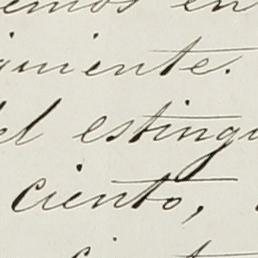 emos en
guiente.
el estingu
ciento,